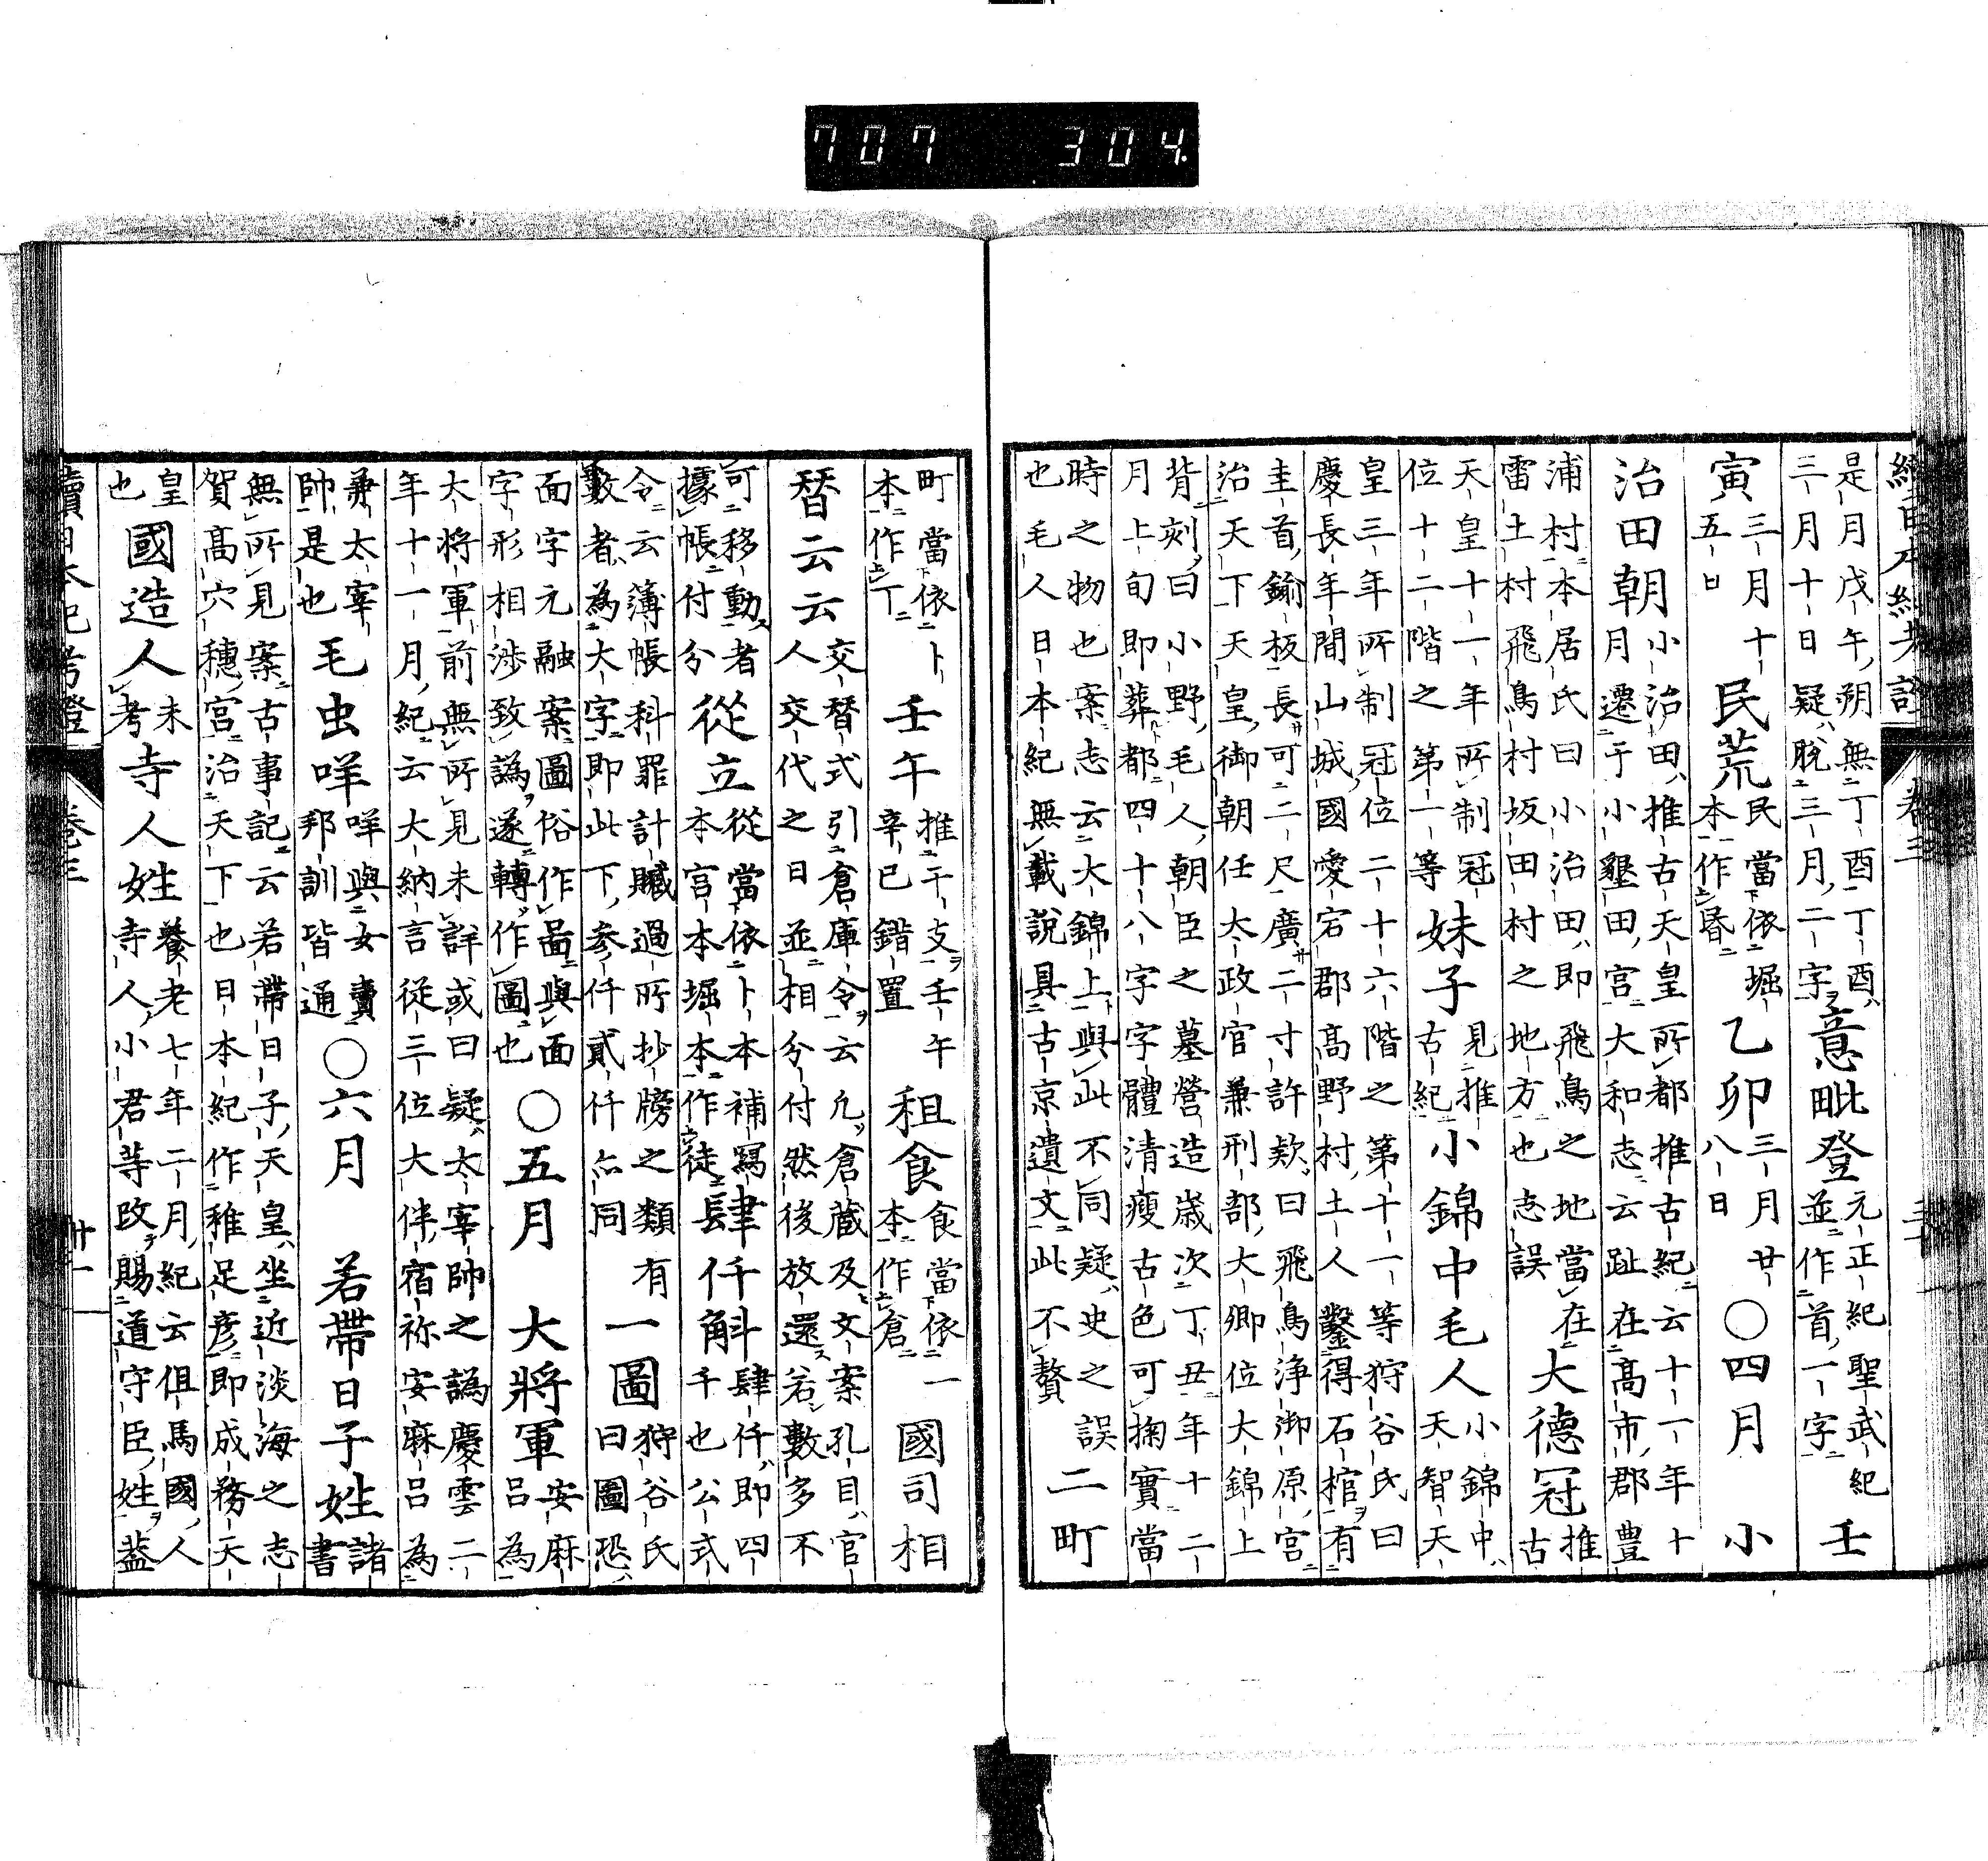 707 304
續日本紀考證 卷三
是月戊午朔無丁酉丁酉
三月十日疑脫三月二字
意毗登
元正紀聖武紀
並作首一字
壬
寅
三月十
五日
民荒
民當依堀
本作昬
乙卯
三月廿
八日
○四月 小
治田朝
小治田推古天皇所都推古紀云十一年十
月遷于小墾田宮大和志云趾在高市郡豊
浦村本居氏曰小治田即飛鳥之地當在
雷土村飛鳥村坂田村之地方也志誤
大德冠
推
古
天皇十一年所制冠
位十二階之第一等
妹子
見推
古紀
小錦中毛人
小錦中
天智天
皇三年所制冠位二十六階之第十一等狩谷氏曰
慶長年間山城國愛宕郡高野村土人鑿得石棺有
圭首鍮板長可二尺廣二寸許欵曰飛鳥浄御原宮
治天下天皇御朝任大政官兼刑部大卿位大錦上
背刻曰小野毛人朝臣之墓營造歲次丁丑年十二
月上旬即葬都四十八字字體清瘦古色可掬實當
時之物也案志云大錦上與此不同疑史之誤
也毛人日本紀無載說具古京遺文此不贅
二町
町當依卜
本作丁
壬午
推干支壬午
辛巳錯置
租食
食當依一
本作倉
國司相
替云云
交替式引倉庫令云凡倉藏及文案孔目官
人交代之日並相分付然後放還若數多不
可移動者
據帳付分
從立
從當依卜本補寫
本宮本堀本作徒
肆仟斛
肆仟即四
千也公式
令云簿帳科罪計贓過所抄牓之類有
數者為大字即此下参仟貳仟亦同
一圖
狩谷氏
曰圖恐
面字元融案圖俗作啚與面
字形相涉致譌遂轉作圖也
○五月
大將軍
安麻
呂為
大將軍前無所見未詳或曰疑太宰帥之譌慶雲二
年十一月紀云大納言從三位大伴宿祢安麻呂為
兼太宰
帥是也
毛虫咩
咩與女賣
邦訓皆通
○六月
若帶日子姓
諸
書
無所見案古事記云若帶日子天皇坐近淡海之志
賀高穴穗宮治天下也日本紀作稚足彥即成務天
皇
也
國造人
未
考
寺人姓
養老七年二月紀云俱馬國人
寺人小君等改賜道守臣姓蓋
續日本紀考證 卷三 廿一